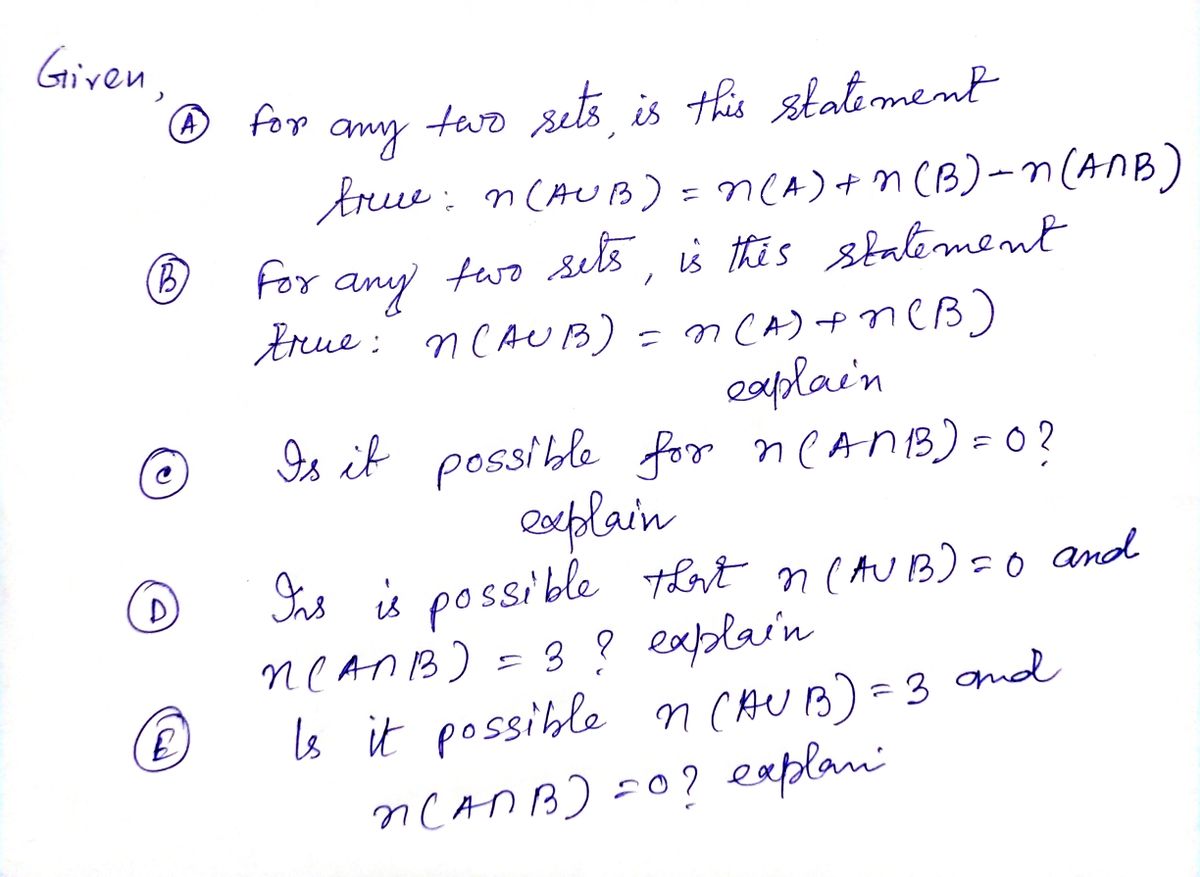 Given,
Ⓐ for any two sets, is this statement
true: n(A∪B) = n(A)+n(B)-n(A∩B)
Ⓑ For any two sets, is this statement
true: n(A∪B) = n(A)+n(B)
explain
Ⓒ Is it possible for n(A∩B)=0?
explain
Ⓓ Ins is possible that n(A∪B)=0 and
n(A∩B) = 3? explain
Ⓔ Is it possible n(A∪B)=3 and
n(A∩B)=0? explani